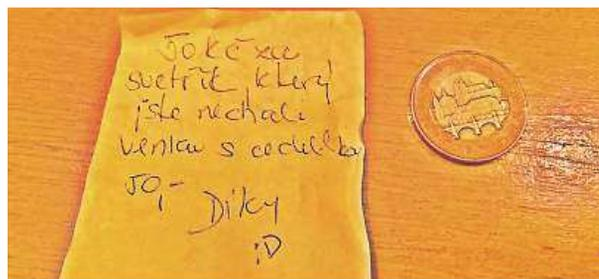 50 Kč za
svetřík, který
jste nechali
venku s cedulkou
50,-
Díky
;D